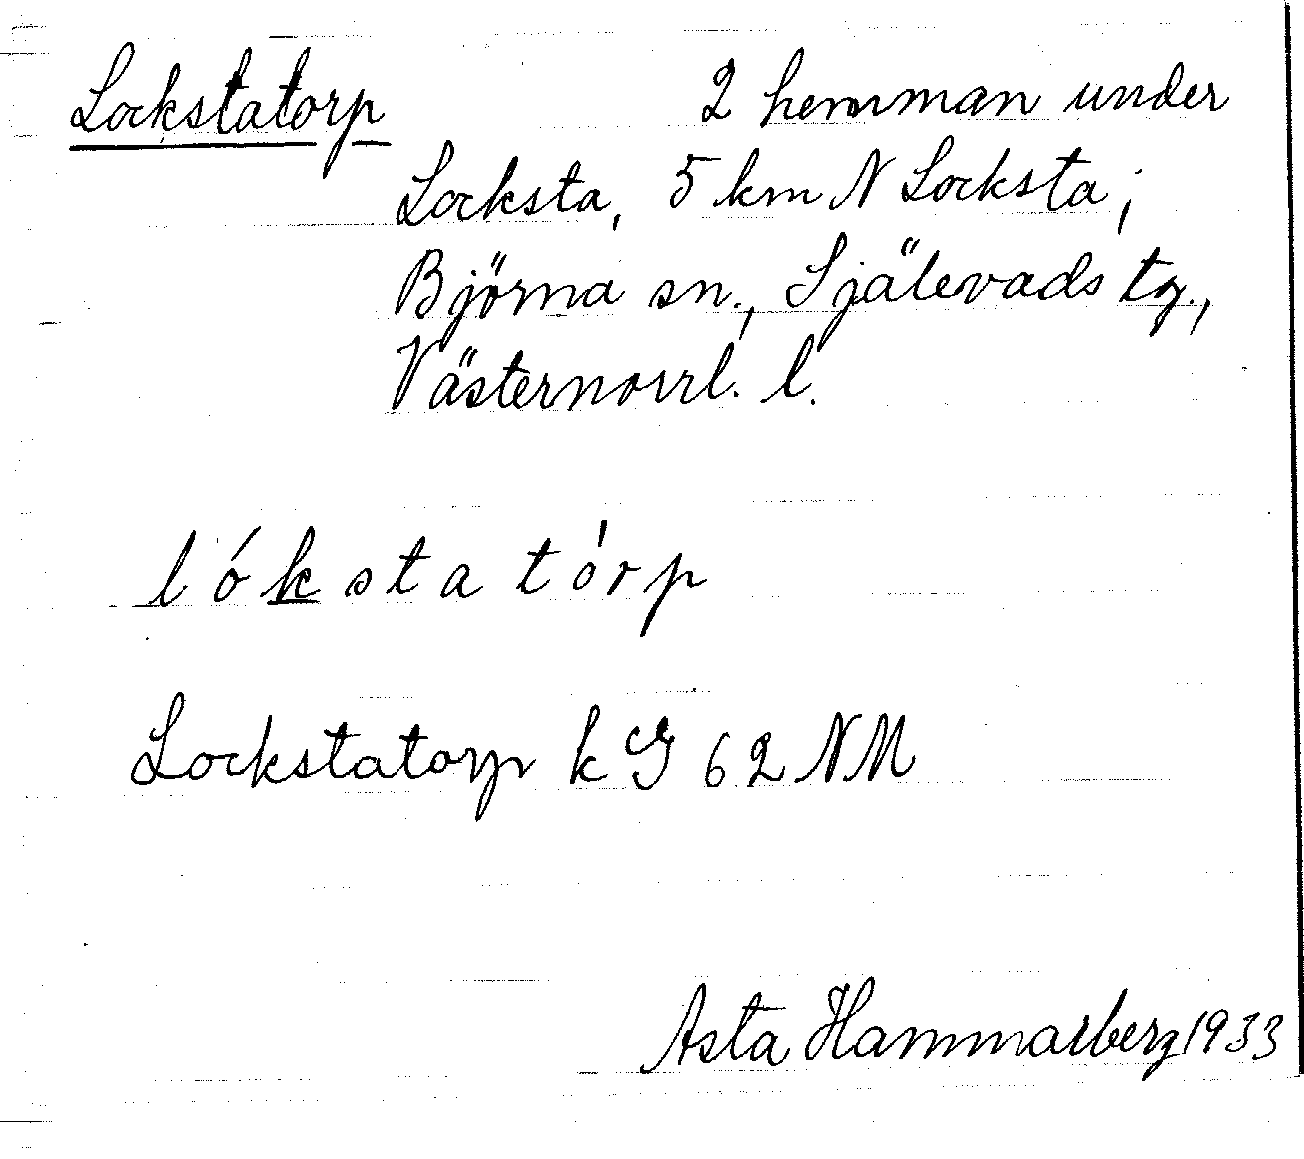 Lockstatorp 2 hemman under
Locksta, 5 km N Locksta;
Björna sn., Själevads tg.,
Västernorrl. l.
lókstatórp
Lockstatorp k 62 NM
Asta Hammarberg 1933